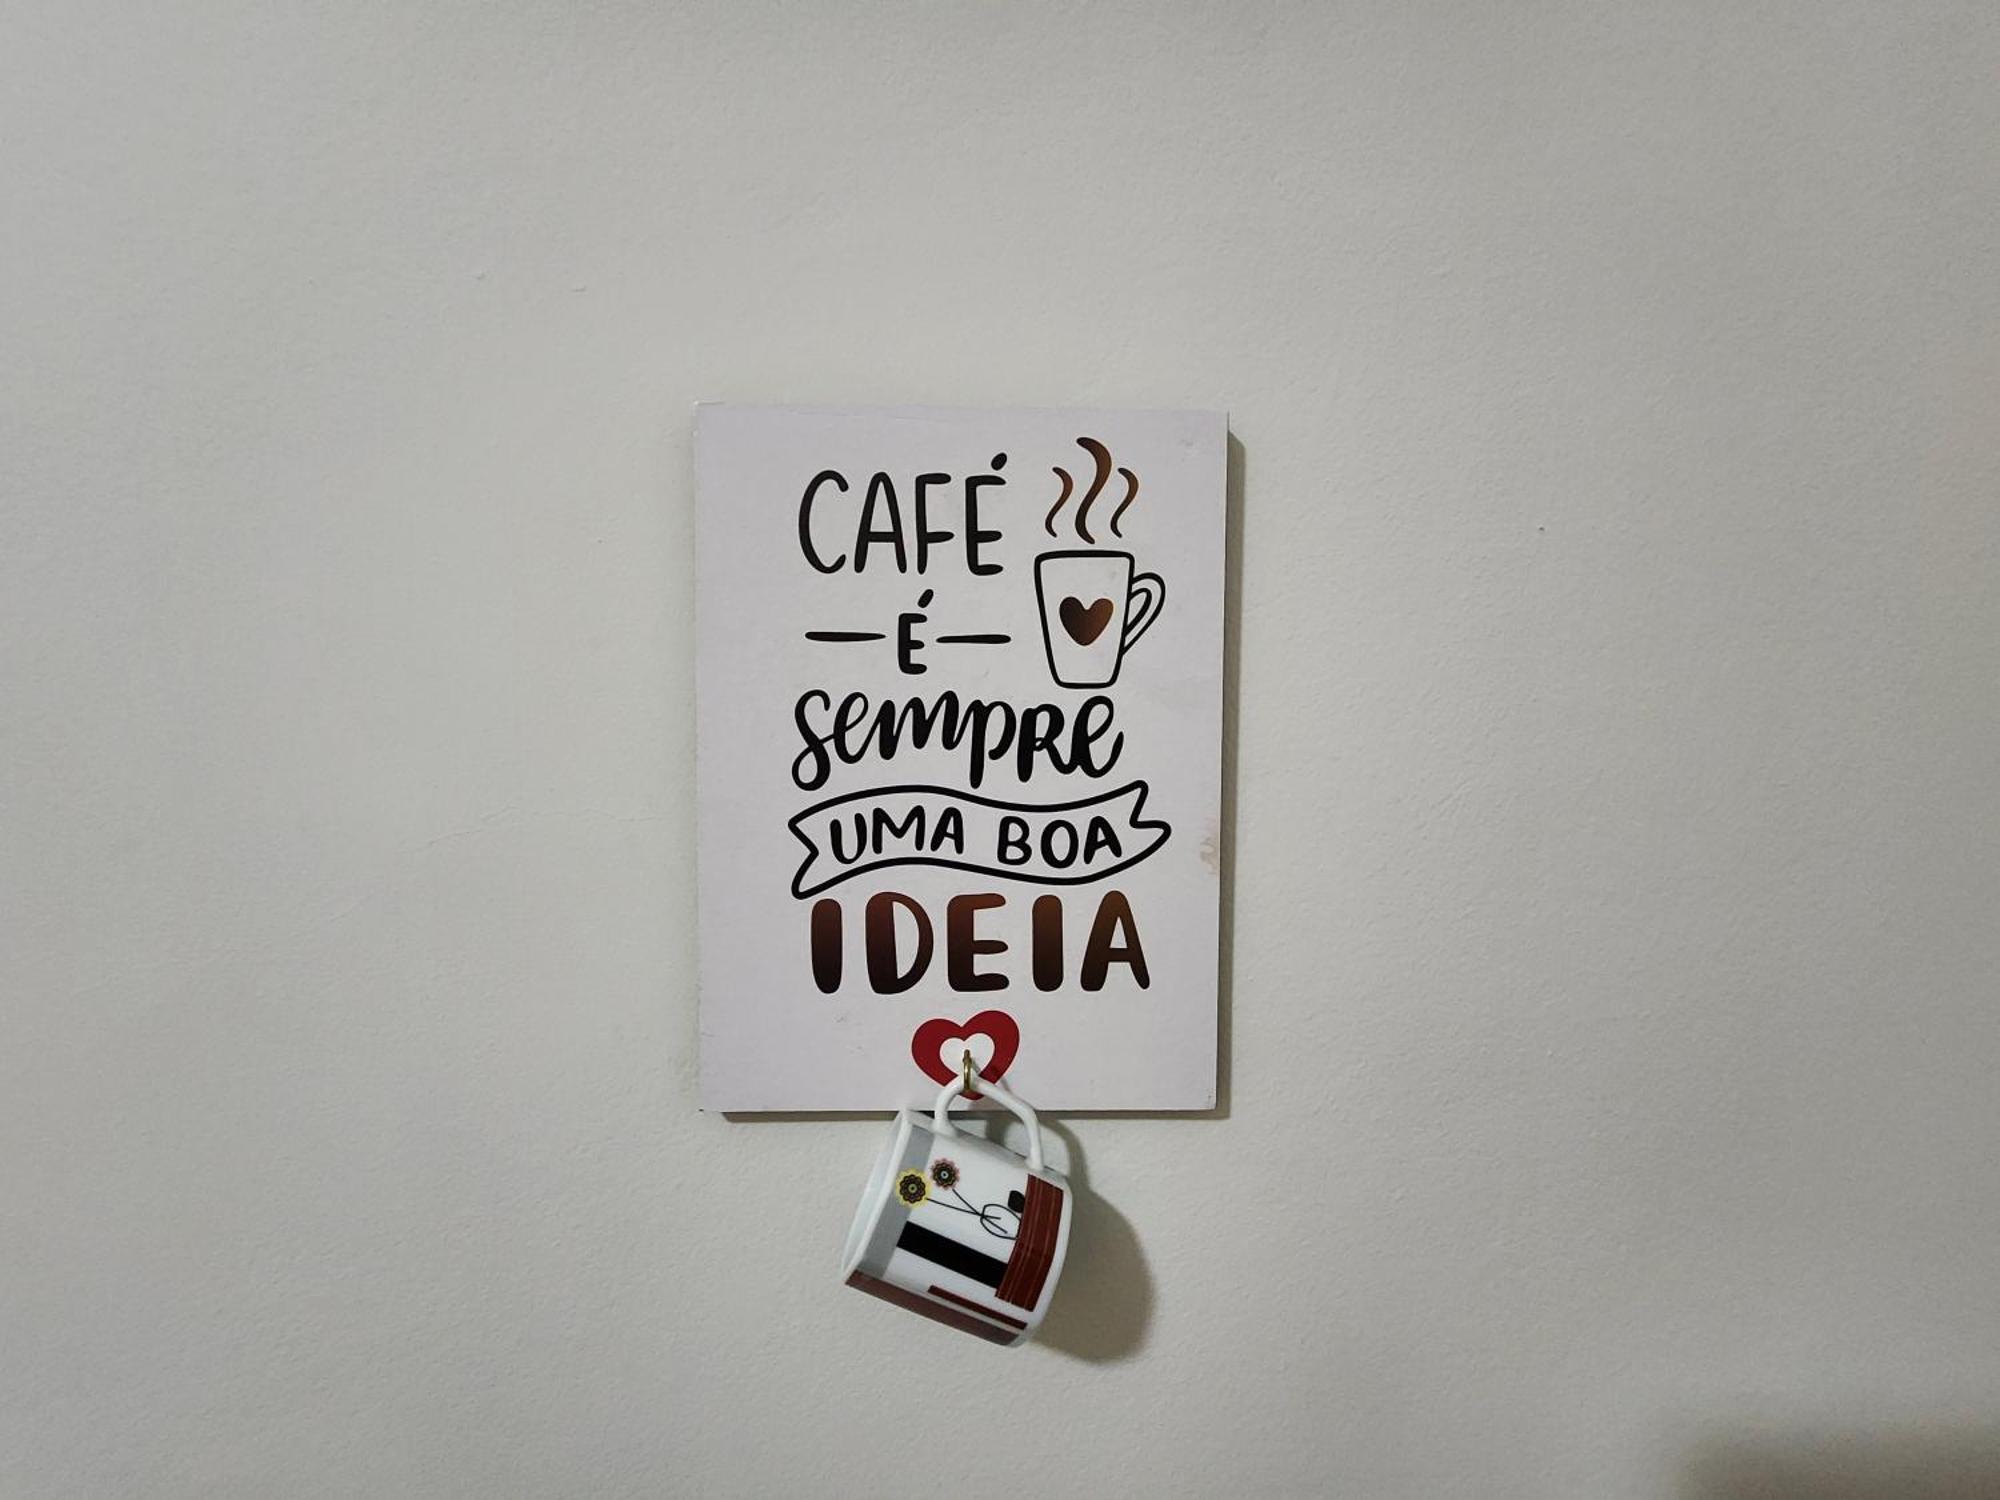 CAFÉ
É
sempre
UMA BOA
IDEIA